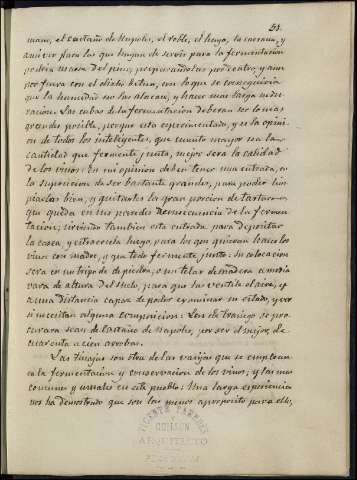 21.
mano, el castaño de Napoles, el roble, el haya, la carrasca, y
aun ver para los que hayan de servir para la fermentacion
podria usarse del pino, preparandolos por dentro, y aun
por fuera con el dicho betun, con lo que se conseguiria
que la humedad no los atacara, y hacer mas larga su du-
racion. Las cubas de la fermentacion deberan ser lo mas
grandes posible, porque esta esperimentado, y es la opini-
on de todos los inteligentes, que cuanto mayor sea la
cantidad que fermente junta, mejor sera la calidad
de los vinos. En mi opinion deben tener una entrada, en
la superior de ser bastante grandes, para poder lim
piarlas bien, y quitarles la gran porcion de tartaro
que queda en sus paredes á consecuencia de la fermen
tacion; sirviendo tambien esta entrada para depositar
la casca, y estraerla luego, para los que quieran hacer los
vinos con madre, y que todo fermente junto. Su colocacion
sera en un tripode de piedra, ó un telar de madera á media
vara de altura del suelo, para que las ventile el aire, y
a una distancia capaz de poder ecsaminar su estado, y ver
si necesitan alguna composicion: Los de trasiego se pro
curara sean de castaño de Napoles, por ser el mejor, de
cuarenta a cien arrobas.
Las tinajas son otra de las vasijas que se emplean
en la fermentacion y conservacion de los vinos; y las mas
comunes y usuales en este pueblo: Una larga esperiencia
nos ha demostrado que son las menos aproposito para ello,
VICENTE
ARQUITECTO